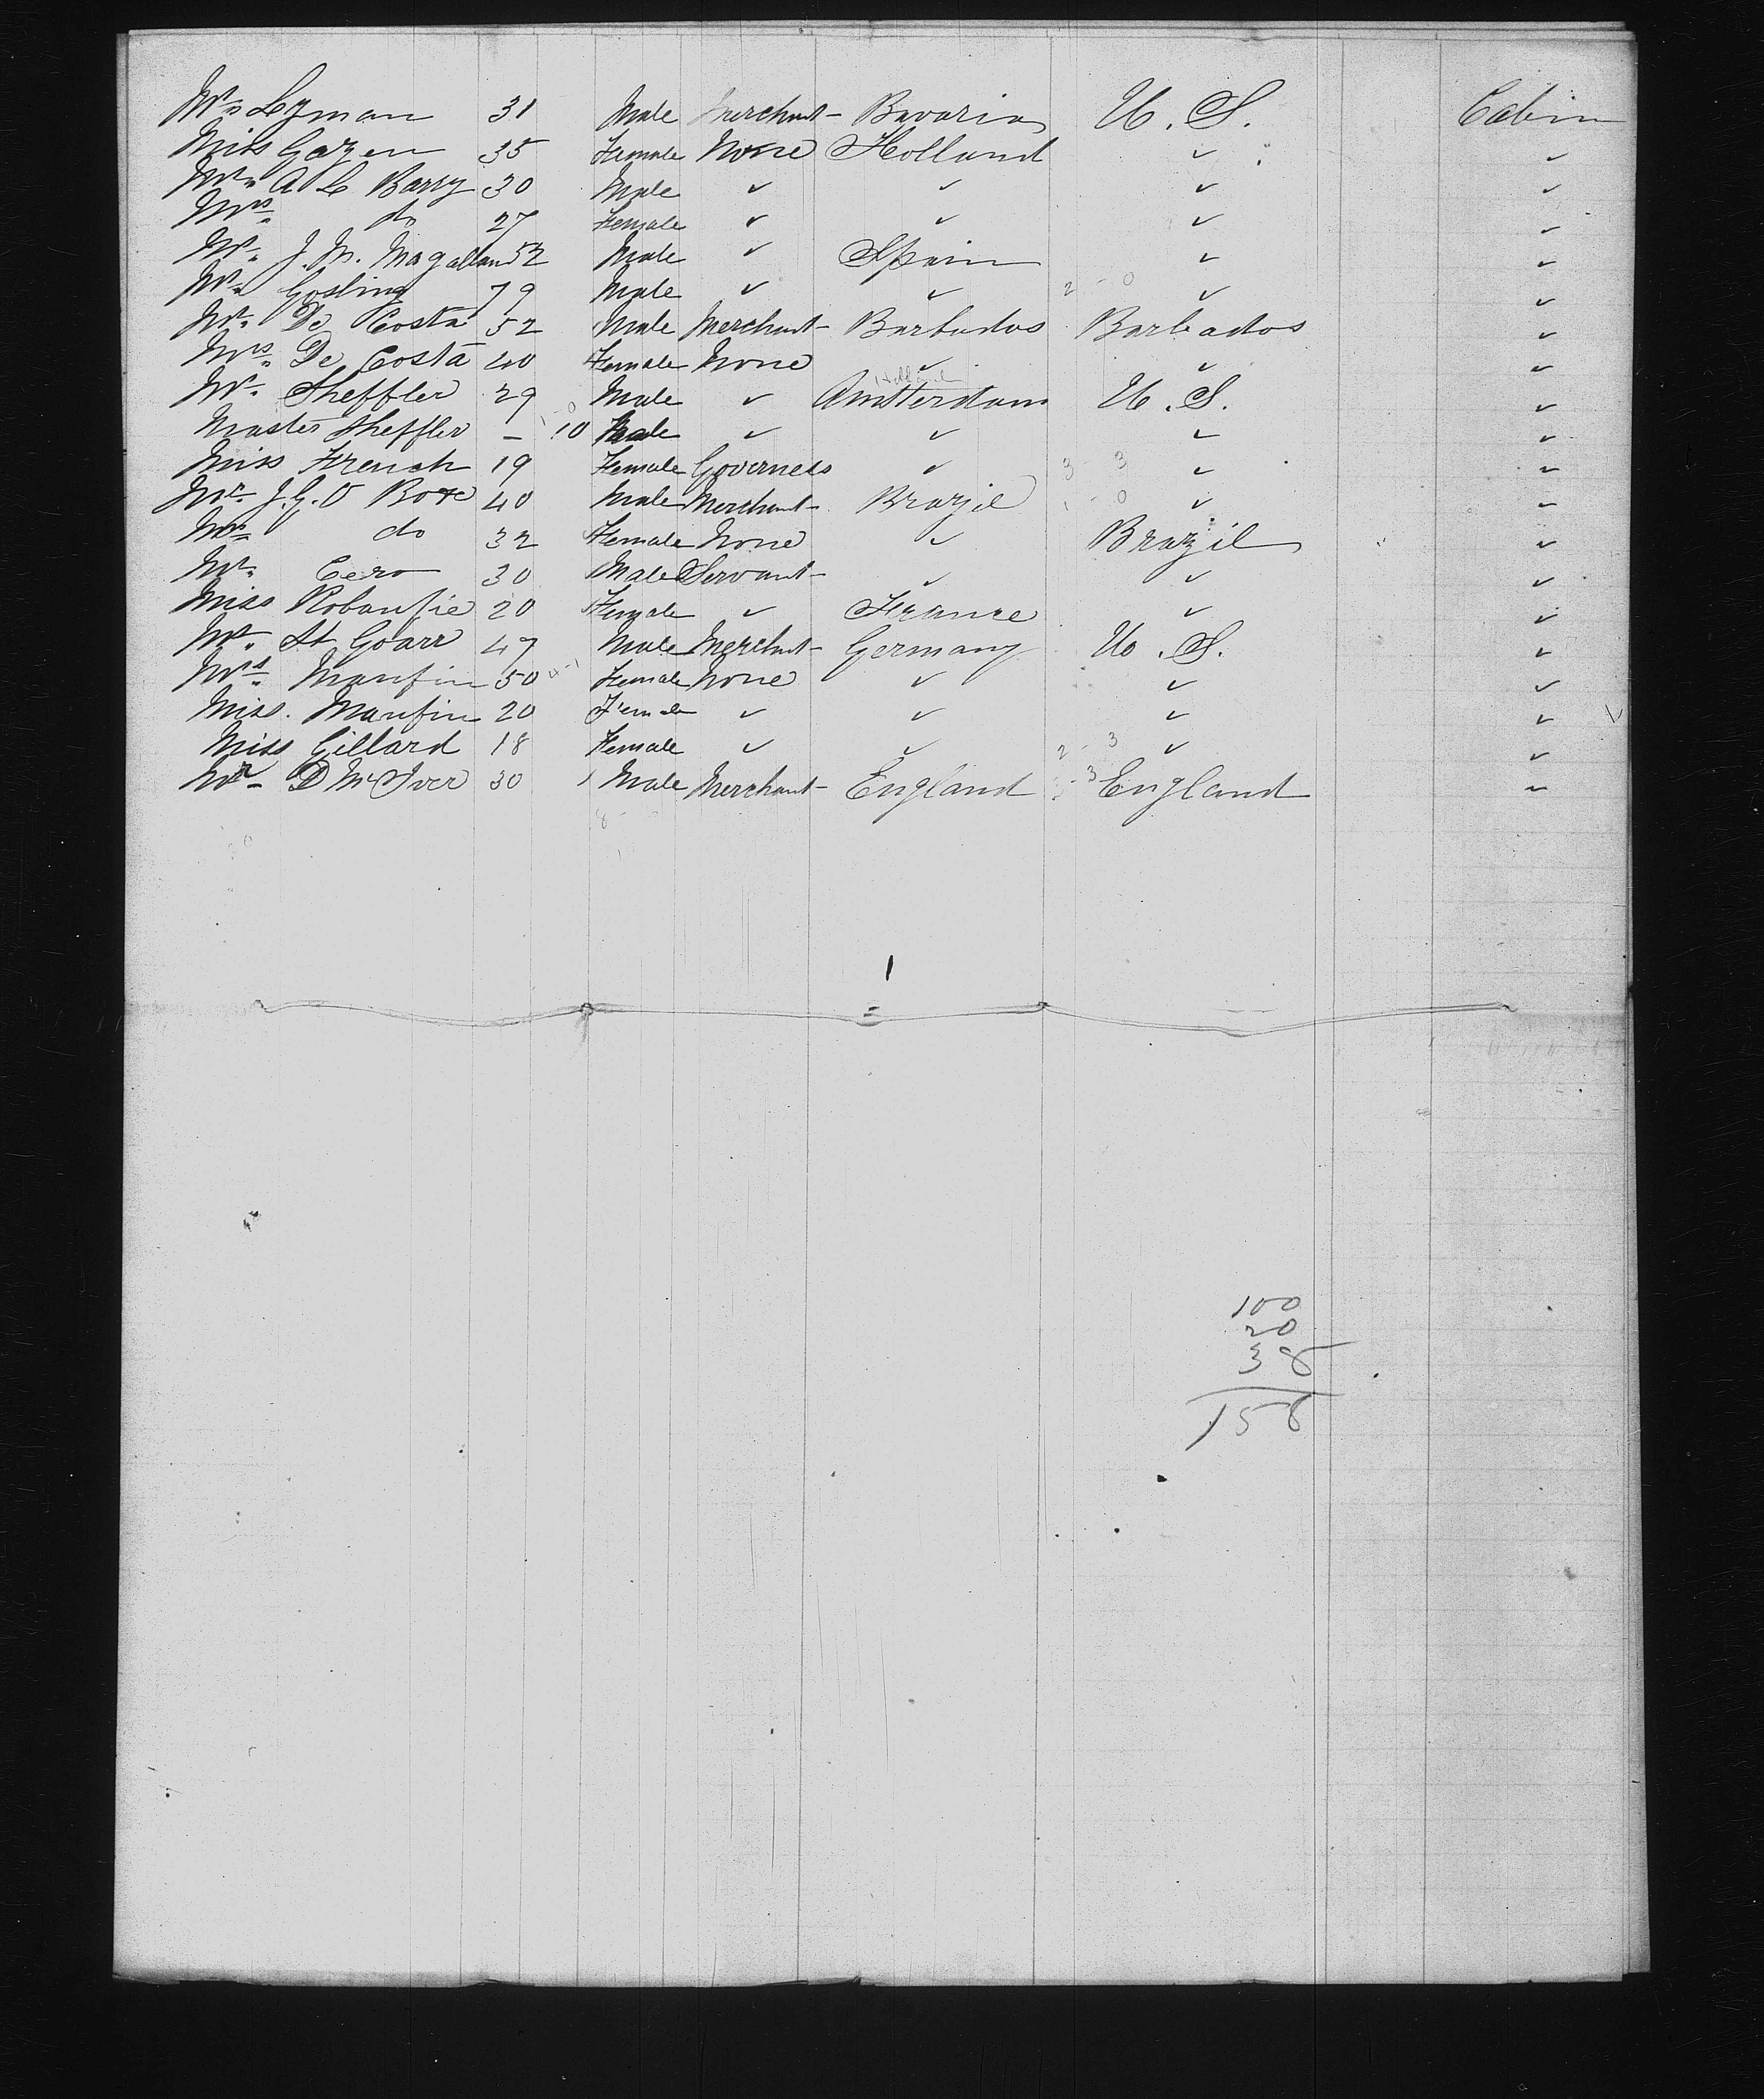 Mr. Lyman 31 Male Merchant Bavaria U.S. Cabin
Miss Gazen 35 Female None Holland ✓ ✓
Mr. A L Barry 30 Male ✓ ✓ ✓ ✓
Mrs. do 27 Female ✓ ✓ ✓ ✓
Mr. J. M. Magallan 52 Male ✓ Spain ✓ ✓
Mr. Gosling 79 Male ✓ ✓ 2 - 0 ✓ ✓
Mr. De Costa 52 Male Merchant Barbados Barbados ✓
Mrs. De Costa 40 Female None ✓ ✓ ✓
Holland
Mr. Sheffler 29 Male ✓ Amsterdam U.S. ✓
Master Sheffler - 10 Male ✓ ✓ ✓ ✓
Miss French 19 Female Governess ✓ 3 - 3 ✓ ✓
Mr. J. G. O 40 Male Merchant Brazil 1 - 0 ✓ ✓
Mrs do 32 Female None ✓ Brazil ✓
Mr. Cero 30 Male Servant ✓ ✓ ✓
Miss 20 Female ✓ France ✓ ✓
Mr. St Goarr 47 Male Merchant Germany U.S. ✓
Mrs. Manfin 50 Female None ✓ ✓ ✓
Miss. Manfin 20 Female ✓ ✓ ✓ ✓
Miss Gillard 18 Female ✓ ✓ 2 - 3 ✓ ✓
Mr D McIver 30 Male Merchant England 3 England ✓
1
100
20
38
158